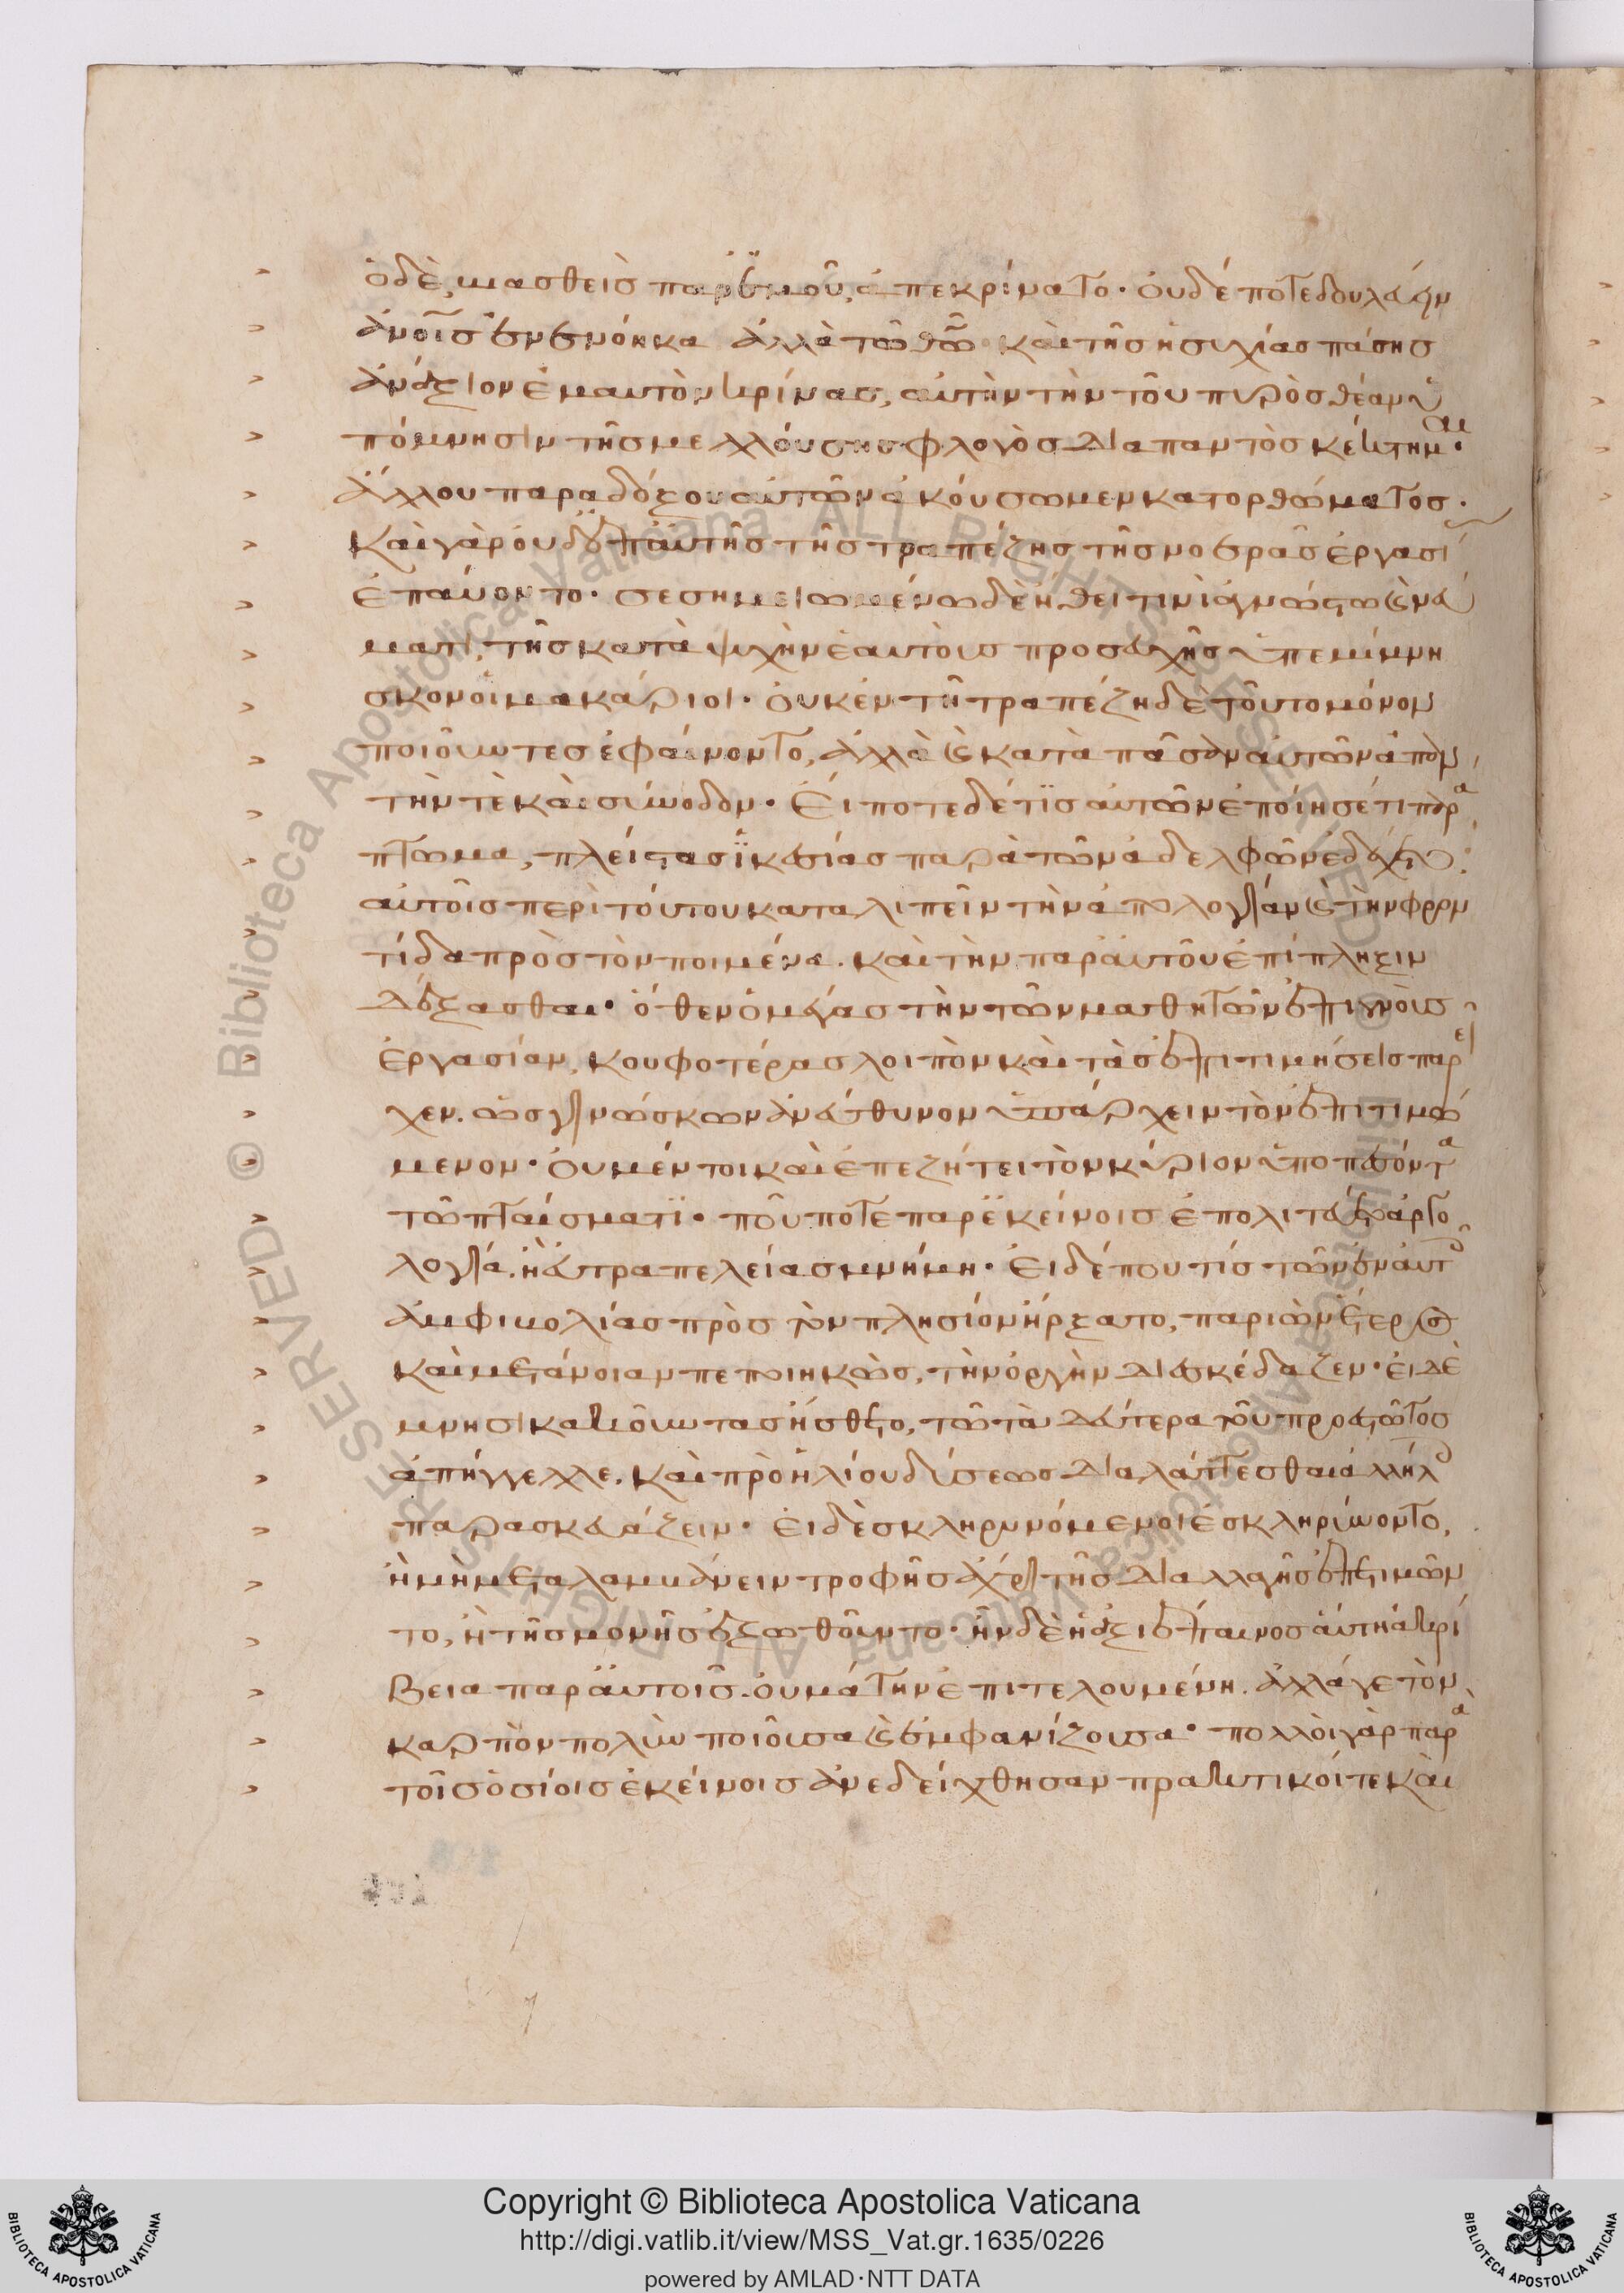 ὁ δὲ βιασθεὶς παρ' ἐμοῦ, ἀπεκρίνατο· οὐδέποτε δουλεύειν
ἀνοις ἐννενόηκα ἀλλὰ τῶ θῶ καὶ τῆς ἡσυχίας πάσης
ἀνάξιον ἐμαυτὸν κρίνας, αὐτὴν τὴν τοῦ πυρὸς θέαν ὑ
πόμνησιν τῆς μελλούσης φλογὸς διαπαντὸς κέκτημαι·
ἄλλου παραδόξου αὐτῶν ἀκούσωμεν κατορθώματος·
καὶ γὰρ οὐδὲ ἐπ' αὐτῆς τῆς τραπέζης τῆς νοερᾶς ἐργασί
ἐπαύοντο· σεσημειωμένω δὲ ἤθει τινὶ ἀγνώστω (καὶ) νεύ
ματι, τῆς κατὰ ψυχὴν ἑαυτοὺς προσευχῆς ὑπεμίμνη
σκον οἱ μακάριοι· οὐκ ἐν τῆ τραπέζη δὲ τοῦτο μόνον
ποιοῦντες ἐφαίνοντο, ἀλλὰ (καὶ) κατὰ πᾶσαν αὐτῶν ἀπάν
τήν τε καὶ σύνοδον· Εἰ ποτὲ δέ τις αὐτῶν ἐποίησέ τι παρα
πτωμα, πλείστας ἱκεσίας παρὰ τῶν ἀδελφῶν ἐδέχετο
αὐτοῖς περὶ τούτου καταλιπεῖν τὴν ἀπολογίαν (καὶ) τὴν φρον
τίδα πρὸς τὸν ποιμένα. καὶ τὴν παρ' αὐτοῦ ἐπίπληξιν
δέξασθαι· ὅθεν ὁ μέγας τὴν τῶν μαθητῶν ἐπιγνοὺς
ἐργασίαν, κουφοτέρας λοιπὸν καὶ τὰς ἐπιτιμήσεις παρεῖ
χεν. ὡς γινώσκων ἀνεύθυνον ὑπάρχειν τὸν ἐπιτιμώ
μενον· οὐ μέν τοι καὶ ἐπεζήτει τὸν κύριον ὑποπεσόντα
τῶ πταίσματι· ποῦ ποτὲ παρ' ἐκείνοις ἐπολιτεύετο ἀργο
λογία. ἢ εὐτραπελείας μνήμη· Εἰ δέ που τίς τῶν ἐν αὐτοῖς
ἀμφιβολίας πρὸς τὸν πλησίον ἤρξατο, παριὼν ἕτερος
καὶ μετάνοιαν πεποιηκὼς, τὴν ὀργὴν διεσκέδαζεν· εἰ δὲ
μνησικακοῦντας ἤσθετο, τῶ τὰ δεύτερα τοῦ προεστῶτος
ἀπήγγελλε. καὶ πρὸ ἡλίου δύσεως διαλάττεσθαι ἀλλήλοις
παρασκευάζειν· εἰ δὲ σκληρυνόμενοι ἐσκληρύνοντο,
ἢ μὴ μεταλαμβάνειν τροφῆς ἄχρι τῆς διαλλαγῆς ἐπετιμῶν
το, ἢ τῆς μονῆς ἐξωθοῦντο· ἦν δὲ ἡ ἀξιέπαινος αὕτη ἀκρί
βεια παρ' αὐτοῖς. οὐ μάτην ἐπιτελουμένη. ἀλλάγε τὸν
καρπὸν πολὺν ποιοῦσα (καὶ) ἐμφανίζουσα· πολλοὶ γὰρ παρὰ
τοῖς ὁσίοις ἐκείνοις ἀνεδείχθησαν πρακτικοί τε καὶ
Copyright © Biblioteca Apostolica Vaticana
http://digi.vatlib.it/view/MSS_Vat.gr.1635/0226
powered by AMLAD·NTT DATA